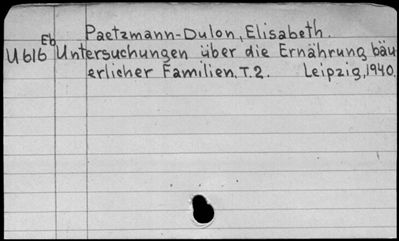 Paetzmann-Dulon, Elisabeth.
Eb
U 616 Untersuchungen über die Ernährung bäu
erlicher Familien. T.2. Leipzig, 1940.